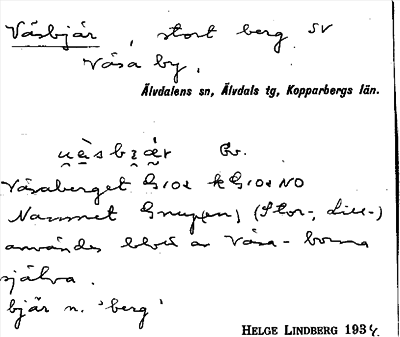 Väsbjär, stort berg SV
Väsa by.
Älvdalens sn, Älvdals tg, Kopparbergs län.
Gr.
Väsaberget G10x kG10x NO
Namnet Gnupen, (Stor-, Lill-)
användes blott av Väsa-borna
själva.
bjär n. 'berg'
HELGE LINDBERG 1934.